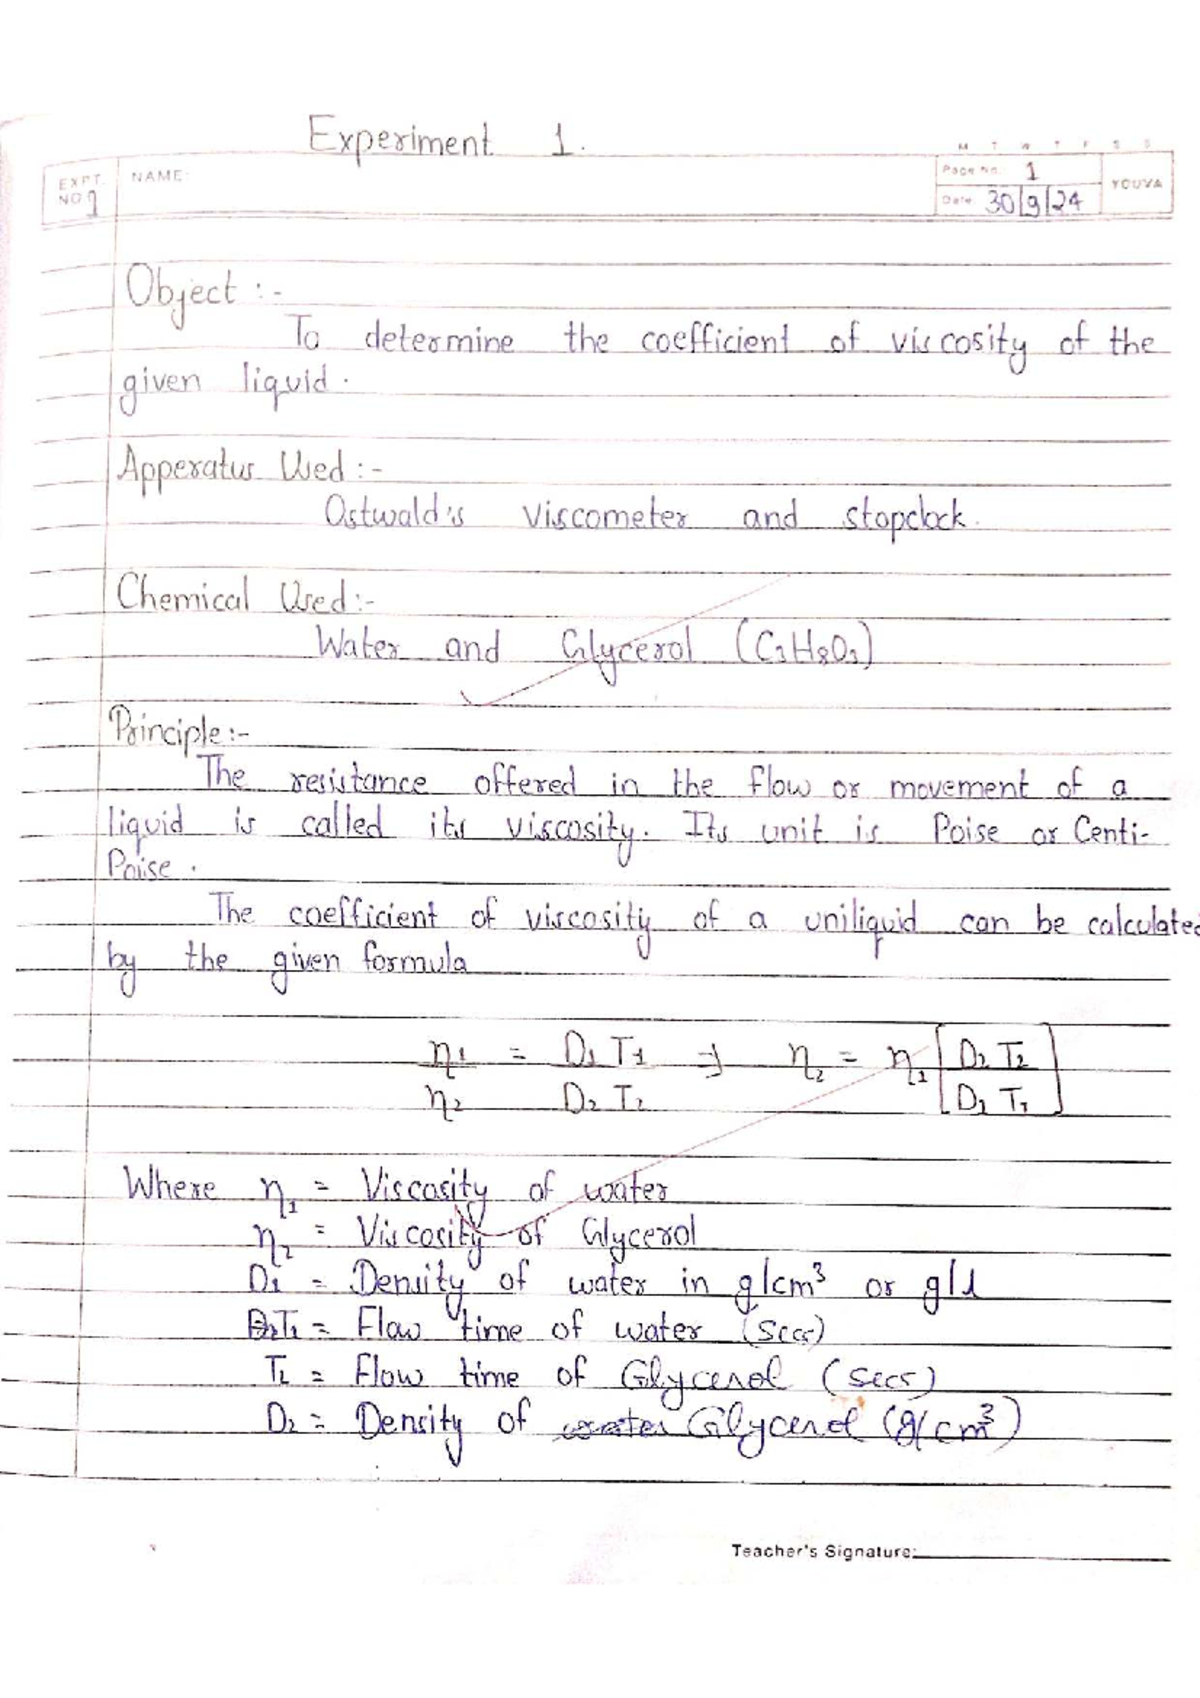 Experiment 1.
M T W T F S S
EXPT. NO. 1 NAME: Page No. 1 YOUVA
Date 30/9/24
Object :-
To determine the coefficient of viscosity of the
given liquid.
Apperatus Used :-
Ostwald's viscometer and stopclock.
Chemical Used :-
Water and Glycerol (C3H8O3)
Principle :-
The resistance offered in the flow or movement of a
liquid is called its viscosity. Its unit is Poise or Centi-
Poise.
The coefficient of viscosity of a uniliquid can be calculated
by the given formula
η1/η2 = D1 T1/D2 T2 ⇒ η2 = η1 [D2 T2/D1 T1]
Where η1 = Viscosity of water
η2 = Viscosity of Glycerol
D1 = Density of water in g/cm3 or g/l
T1 = Flow time of water (Secs)
T2 = Flow time of Glycerol (Secs)
D2 = Density of water Glycerol (g/cm3)
Teacher's Signature: